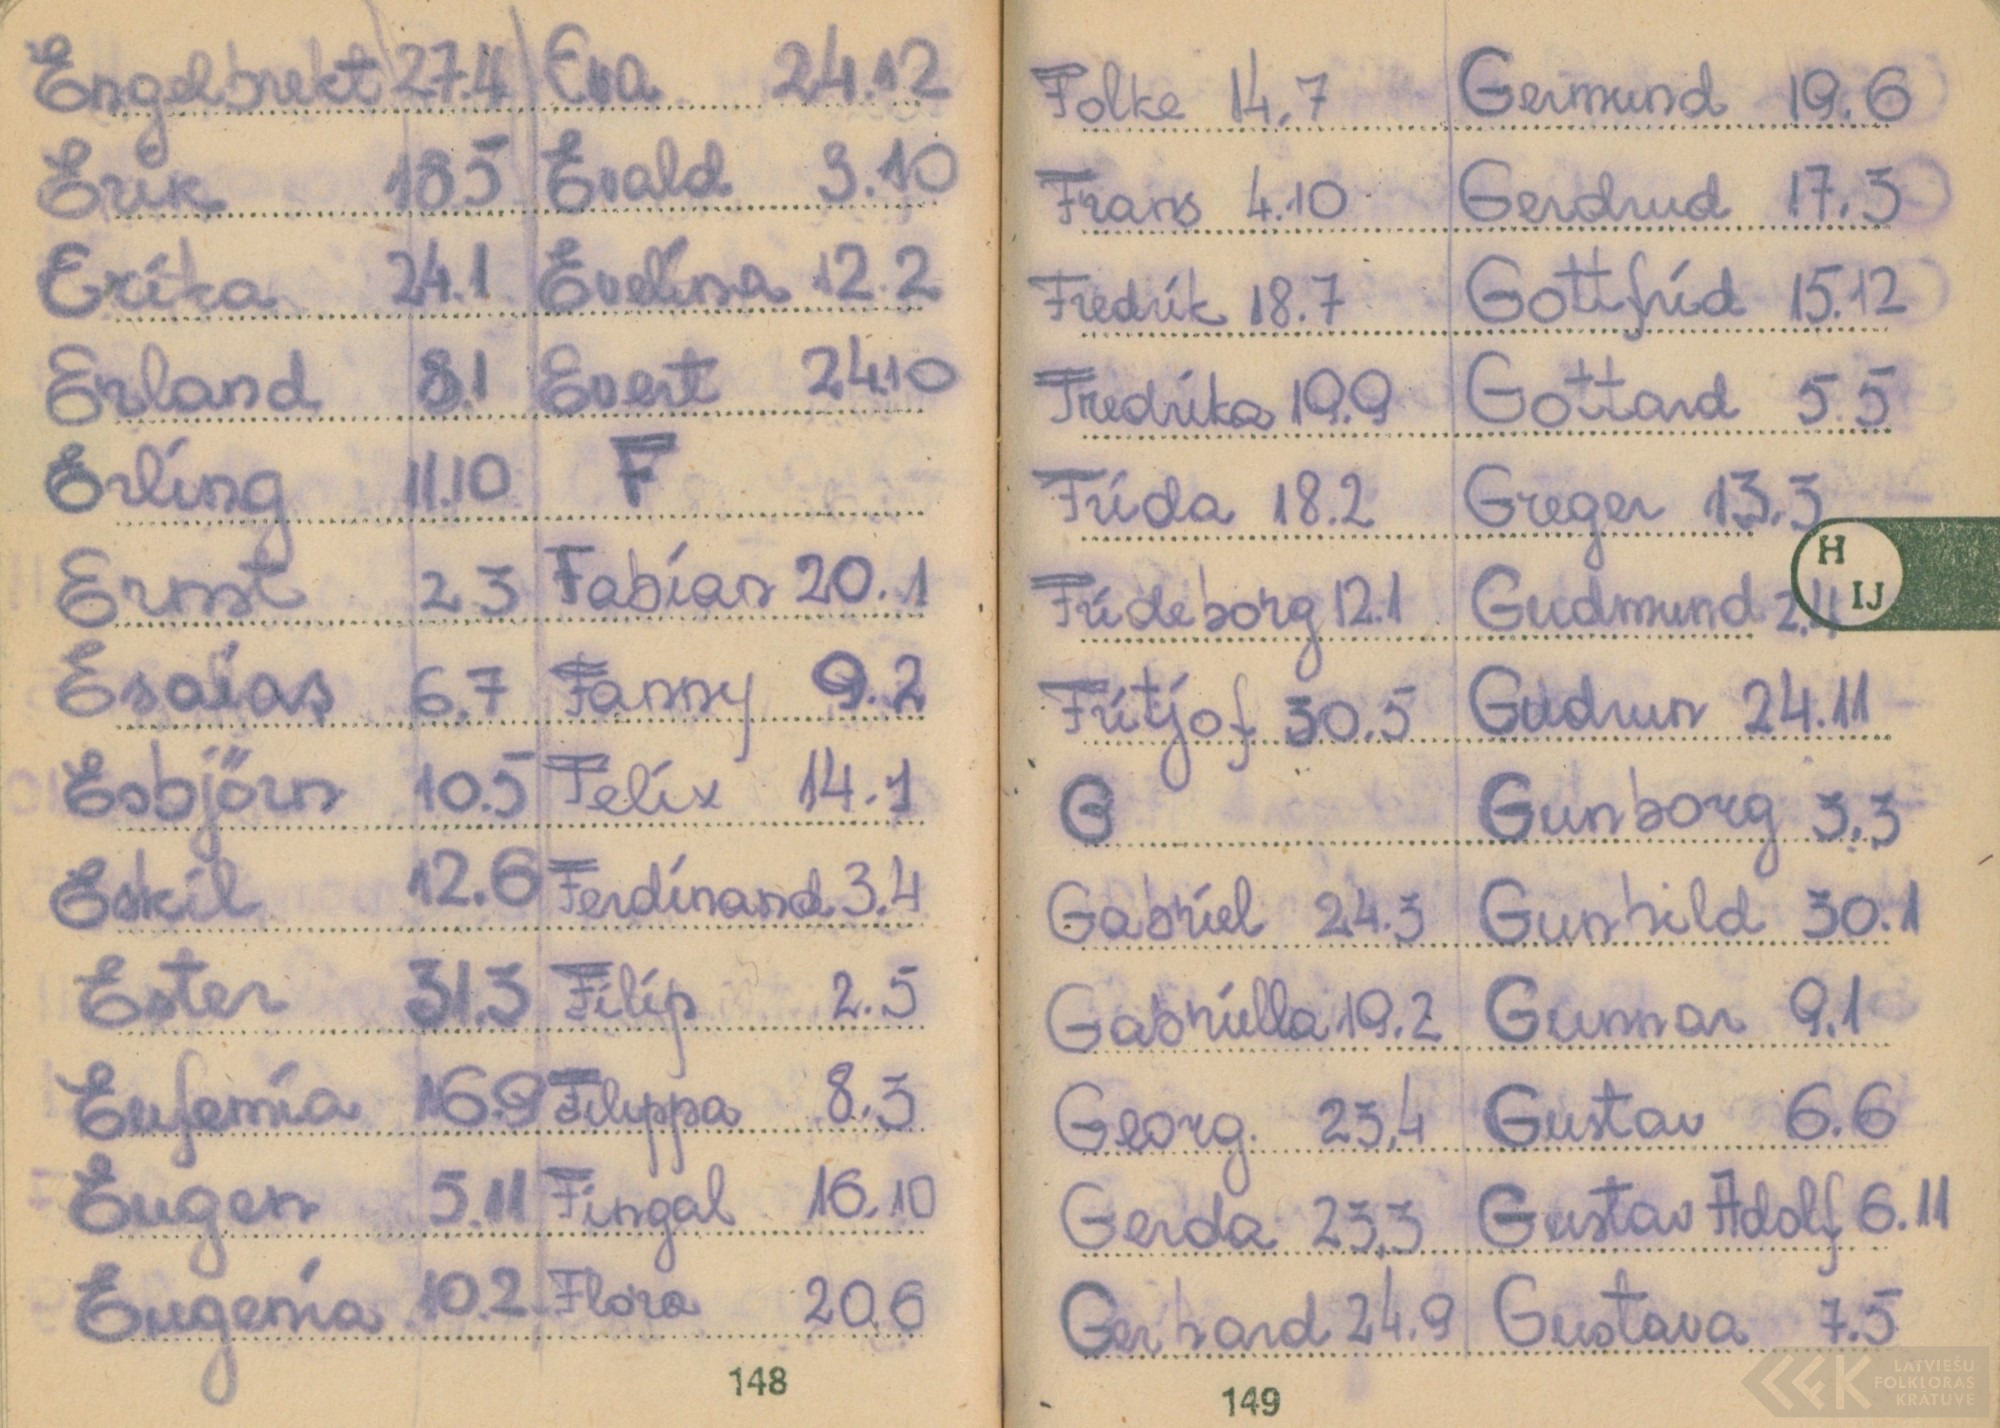 Engelbrekt 27.4
Erik 18 5
Erika 24.1
Erland 8.1
Erling 11.10
Ernst 2 3
Esaias 6.7
Esbjörn 10.5
Eskil 12.6
Ester 31.3
Eufemia 16.9
Eugen 5.11
Eugenia 10.2
Eva 24.12
Evald 3.10
Evelina 12.2
Evert 24.10
F
Fabian 20.1
Fanny 9.2
Felix 14.1
Ferdinand 3.4
Filip 2.5
Filippa 8.3
Fingal 16.10
Flora 20.6
148
Folke 14.7
Frans 4.10
Fredrik 18.7
Fredrika 19.9
Frida 18.2
Frideborg 12.1
Fritjof 30.5
G
Gabriel 24.3
Gabriella 19.2
Georg. 23,4
Gerda 23,3
Gerhard 24.9
Germund 19.6
Gerdrud 17.3
Gottfrid 15.12
Gottard 5.5
Greger 13.3
Gudmund 2.4
Gudrun 24.11
Gunborg 3.3
Gunhild 30.1
Gunnar 9.1
Gustav 6.6
Gustav Adolf 6.11
Gustava 7.5
H
IJ
149
LATVIEŠU
FOLKLORAS
KRĀTUVE